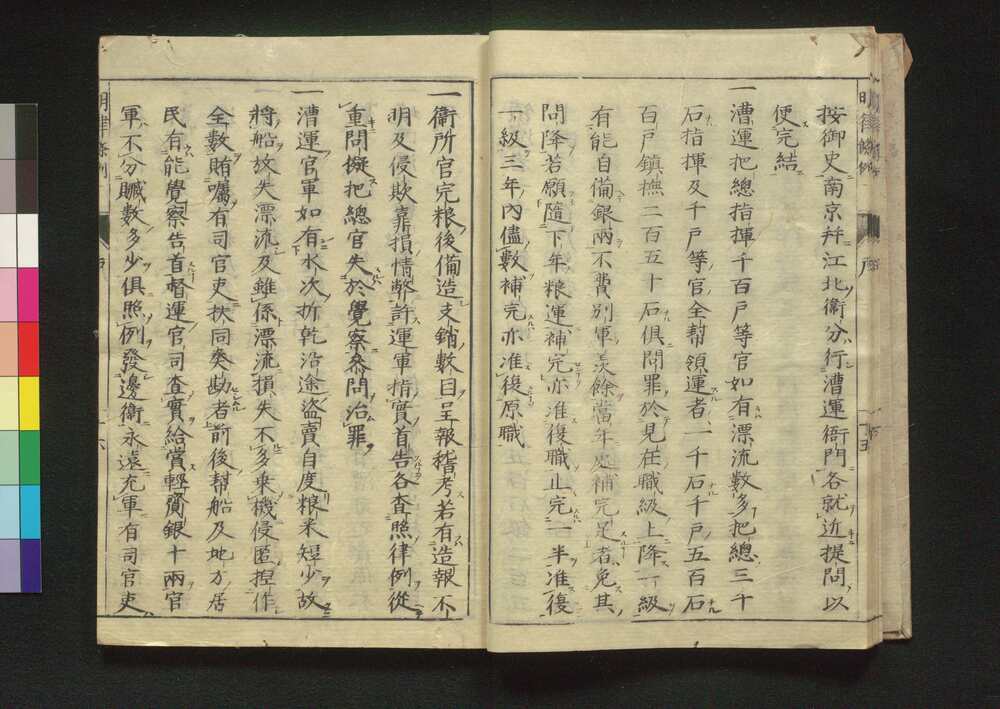 按御史南京幷江北衞分行漕運衙門各就近提問以
便完結
一漕運把總指揮千百戶等官如有漂流數多把總三千
石指揮及千戶等官全幫領運者二千石千戶五百石
百戶鎮撫二百五十石俱問罪於見在職級上降一級
有能自備銀兩不費別軍羨餘當年處補完足者免其
問降若願隨下年粮運補完亦准復職止完一半准復
一級三年內儘數補完亦准復原職
一衞所官完粮後備造支銷數目呈報稽考若有造報不
明及侵欺靠損情弊許運軍指實首告各査照律例從
重問擬把總官失於覺察參問治罪
一漕運官軍如有水次折乾沿途盜賣自度粮米短少故
將船放失漂流及雖係漂流損失不多乗機侵匿捏作
全數賄囑有司官吏扶同奏勘者前後幫船及地方居
民有能覺察告首督運官司査實給賞輕賫銀十兩官
軍不分贓數多少俱照例發邊衞永遠充軍有司官吏
明律條例
戶